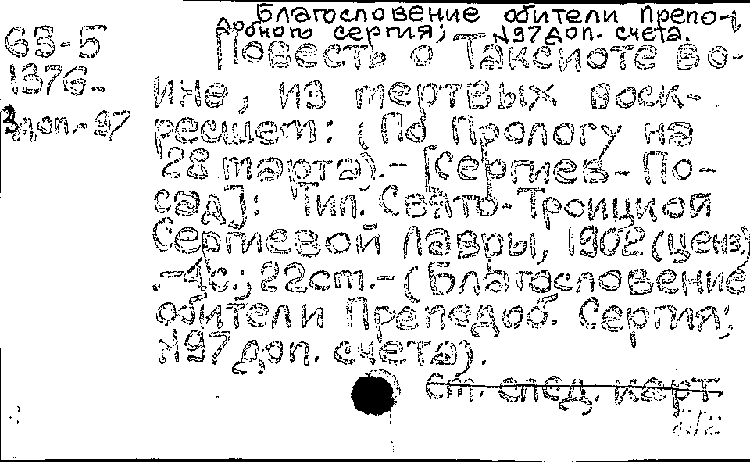 Благословение обители Препо-
добного Сергия; №97 доп. счета.
63-5
1376-
3 доп.-97
Повесть о Таксиоте во-
ине, из мертвых воск-
ресшем: (По Прологу на
28 марта).- [Сергиев-По-
сад]: Тип. Свято-Троицкой
Сергиевой Лавры, 1902 (ценз)
.-4с.; 22см.-(Благословение
обители Преподоб. Сергия;
№97 доп. счета).
См. след. карт.